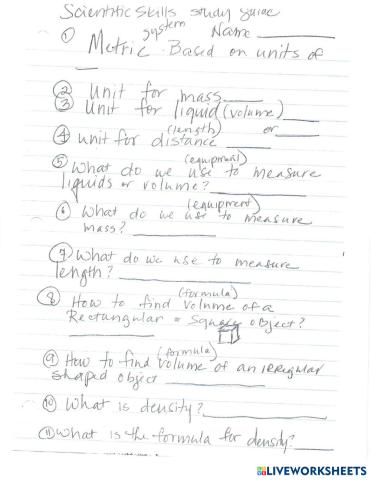 Scientific Skills study guide
① Metric system Name ________
Based on units of
____
② Unit for mass ____
③ Unit for liquid (volume) ____
or ____
④ unit for distance (length) ____
⑤ What do we use to measure (equipment)
liquids or volume? ________
⑥ What do we use to measure (equipment)
mass? ________
⑦ What do we use to measure
length? ________
⑧ How to find volume of a (formula)
Rectangular or Square object?
________
⑨ How to find volume of an irregular (formula)
shaped object ________
⑩ What is density? ________
⑪ What is the formula for density? ____
LIVEWORKSHEETS